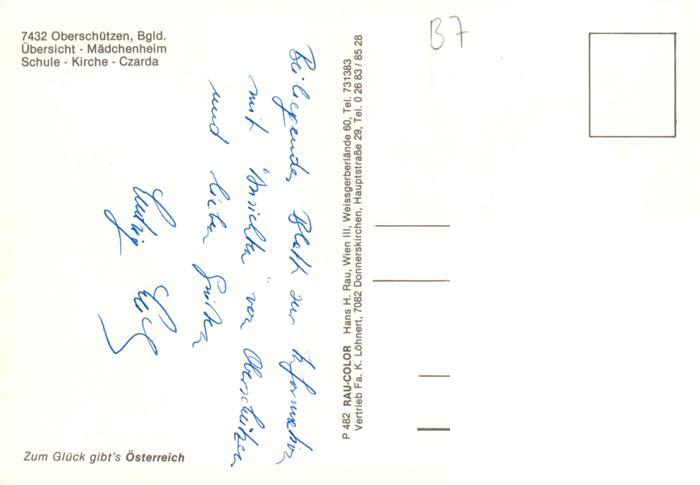 7432 Oberschützen, Bgld.
Übersicht - Mädchenheim
Schule - Kirche - Czarda
B7
Beiliegendes Blatt zur Information
mit "Ansichten" von Oberschützen
und lieben Grüßen
Ludwig
P 482 RAU-COLOR Hans H. Rau, Wien III, Weissgerberlände 60, Tel. 731383
Vertrieb Fa. K. Löhnert, 7082 Donnerskirchen, Hauptstraße 29, Tel. 0 26 83 / 85 28
Zum Glück gibt's Österreich